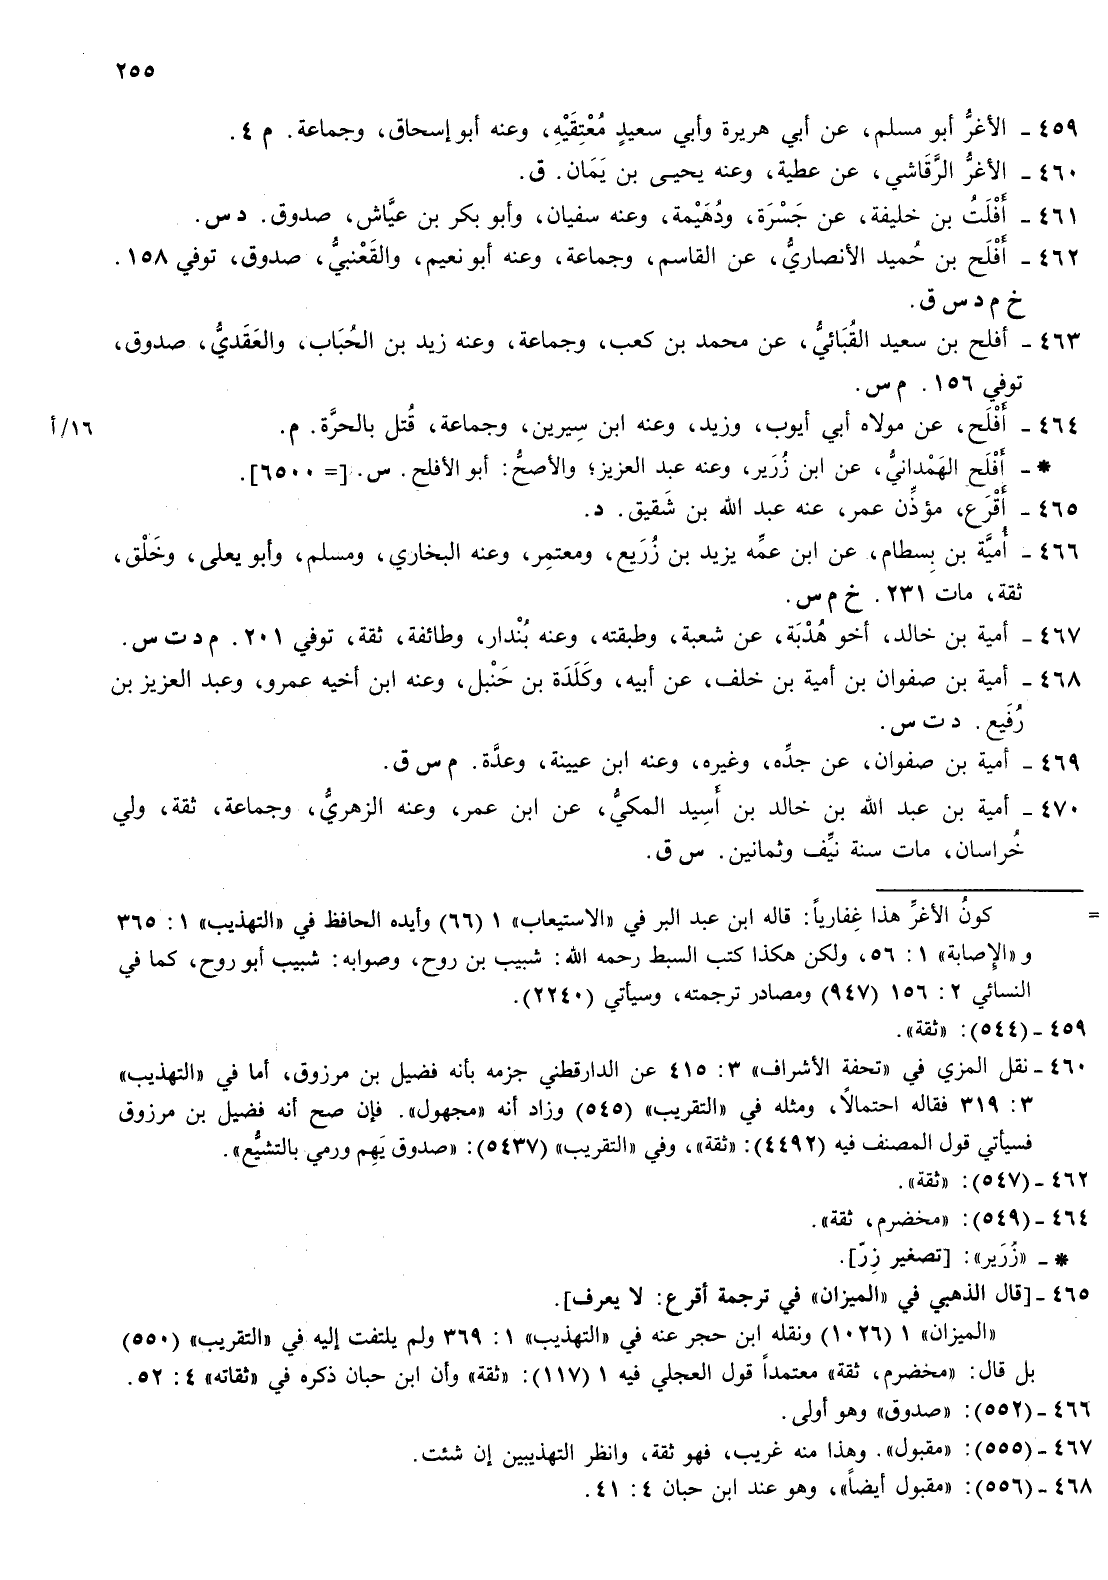 ٢٥٥
٤٥٩ ـ الأغرُّ أبو مسلم، عن أبي هريرة وأبي سعيدٍ مُعْتِقَيْهِ، وعنه أبو إسحاق، وجماعة. م ٤.
٤٦٠ ـ الأغرُّ الرَّقَاشي، عن عطية، وعنه يحيى بن يَمَان. ق.
٤٦١ ـ أَفْلَتُ بن خليفة، عن جَسْرَة، ودُهَيْمة، وعنه سفيان، وأبو بكر بن عيَّاش، صدوق. د س.
٤٦٢ ـ أَفْلَح بن حُميد الأنصاريُّ، عن القاسم، وجماعة، وعنه أبو نعيم، والقَعْنبيُّ، صدوق، توفي ١٥٨.
خ م د س ق.
٤٦٣ ـ أفلح بن سعيد القُبَائيُّ، عن محمد بن كعب، وجماعة، وعنه زيد بن الحُبَاب، والعَقَديُّ، صدوق،
توفي ١٥٦. م س.
٤٦٤ ـ أَفْلَح، عن مولاه أبي أيوب، وزيد، وعنه ابن سِيرين، وجماعة، قُتل بالحرَّة. م.
١٦/أ
* ـ أَفْلَح الهَمْدانيُّ، عن ابن زُرَير، وعنه عبد العزيز؛ والأصحُّ: أبو الأفلح. س. [= ٦٥٠٠].
٤٦٥ ـ أَقْرَع، مؤذِّن عمر، عنه عبد الله بن شَقيق. د.
٤٦٦ ـ أُميَّة بن بِسطام، عن ابن عمِّه يزيد بن زُرَيع، ومعتمِر، وعنه البخاري، ومسلم، وأبو يعلى، وخَلْق،
ثقة، مات ٢٣١. خ م س.
٤٦٧ ـ أمية بن خالد، أخو هُدْبَة، عن شعبة، وطبقته، وعنه بُنْدار، وطائفة، ثقة، توفي ٢٠١. م د ت س.
٤٦٨ ـ أمية بن صفوان بن أمية بن خلف، عن أبيه، وكَلَدَة بن حَنْبل، وعنه ابن أخيه عمرو، وعبد العزيز بن
رُفَيع. د ت س.
٤٦٩ ـ أمية بن صفوان، عن جدِّه، وغيره، وعنه ابن عيينة، وعدَّة. م س ق.
٤٧٠ ـ أمية بن عبد الله بن خالد بن أَسِيد المكيُّ، عن ابن عمر، وعنه الزهريُّ، وجماعة، ثقة، ولي
خُراسان، مات سنة نيِّف وثمانين. س ق.
= كونُ الأغرِّ هذا غِفارياً: قاله ابن عبد البر في «الاستيعاب» ١ (٦٦) وأيده الحافظ في «التهذيب» ١: ٣٦٥
و«الإصابة» ١: ٥٦، ولكن هكذا كتب السبط رحمه الله: شبيب بن روح، وصوابه: شبيب أبو روح، كما في
النسائي ٢: ١٥٦ (٩٤٧) ومصادر ترجمته، وسيأتي (٢٢٤٠).
٤٥٩ ـ (٥٤٤): «ثقة».
٤٦٠ ـ نقل المزي في «تحفة الأشراف» ٣: ٤١٥ عن الدارقطني جزمه بأنه فضيل بن مرزوق، أما في «التهذيب»
٣: ٣١٩ فقاله احتمالاً، ومثله في «التقريب» (٥٤٥) وزاد أنه «مجهول». فإن صح أنه فضيل بن مرزوق
فسيأتي قول المصنف فيه (٤٤٩٢): «ثقة»، وفي «التقريب» (٥٤٣٧): «صدوق يَهِم ورمي بالتشيُّع».
٤٦٢ ـ (٥٤٧): «ثقة».
٤٦٤ ـ (٥٤٩): «مخضرم، ثقة».
* ـ «زُرَير»: [تصغير زِرّ].
٤٦٥ ـ [قال الذهبي في «الميزان» في ترجمة أقرع: لا يعرف].
«الميزان» ١ (١٠٢٦) ونقله ابن حجر عنه في «التهذيب» ١: ٣٦٩ ولم يلتفت إليه في «التقريب» (٥٥٠)
بل قال: «مخضرم، ثقة» معتمداً قول العجلي فيه ١ (١١٧): «ثقة» وأن ابن حبان ذكره في «ثقاته» ٤: ٥٢.
٤٦٦ ـ (٥٥٢): «صدوق» وهو أولى.
٤٦٧ ـ (٥٥٥): «مقبول». وهذا منه غريب، فهو ثقة، وانظر التهذيبين إن شئت.
٤٦٨ ـ (٥٥٦): «مقبول أيضاً»، وهو عند ابن حبان ٤: ٤١.